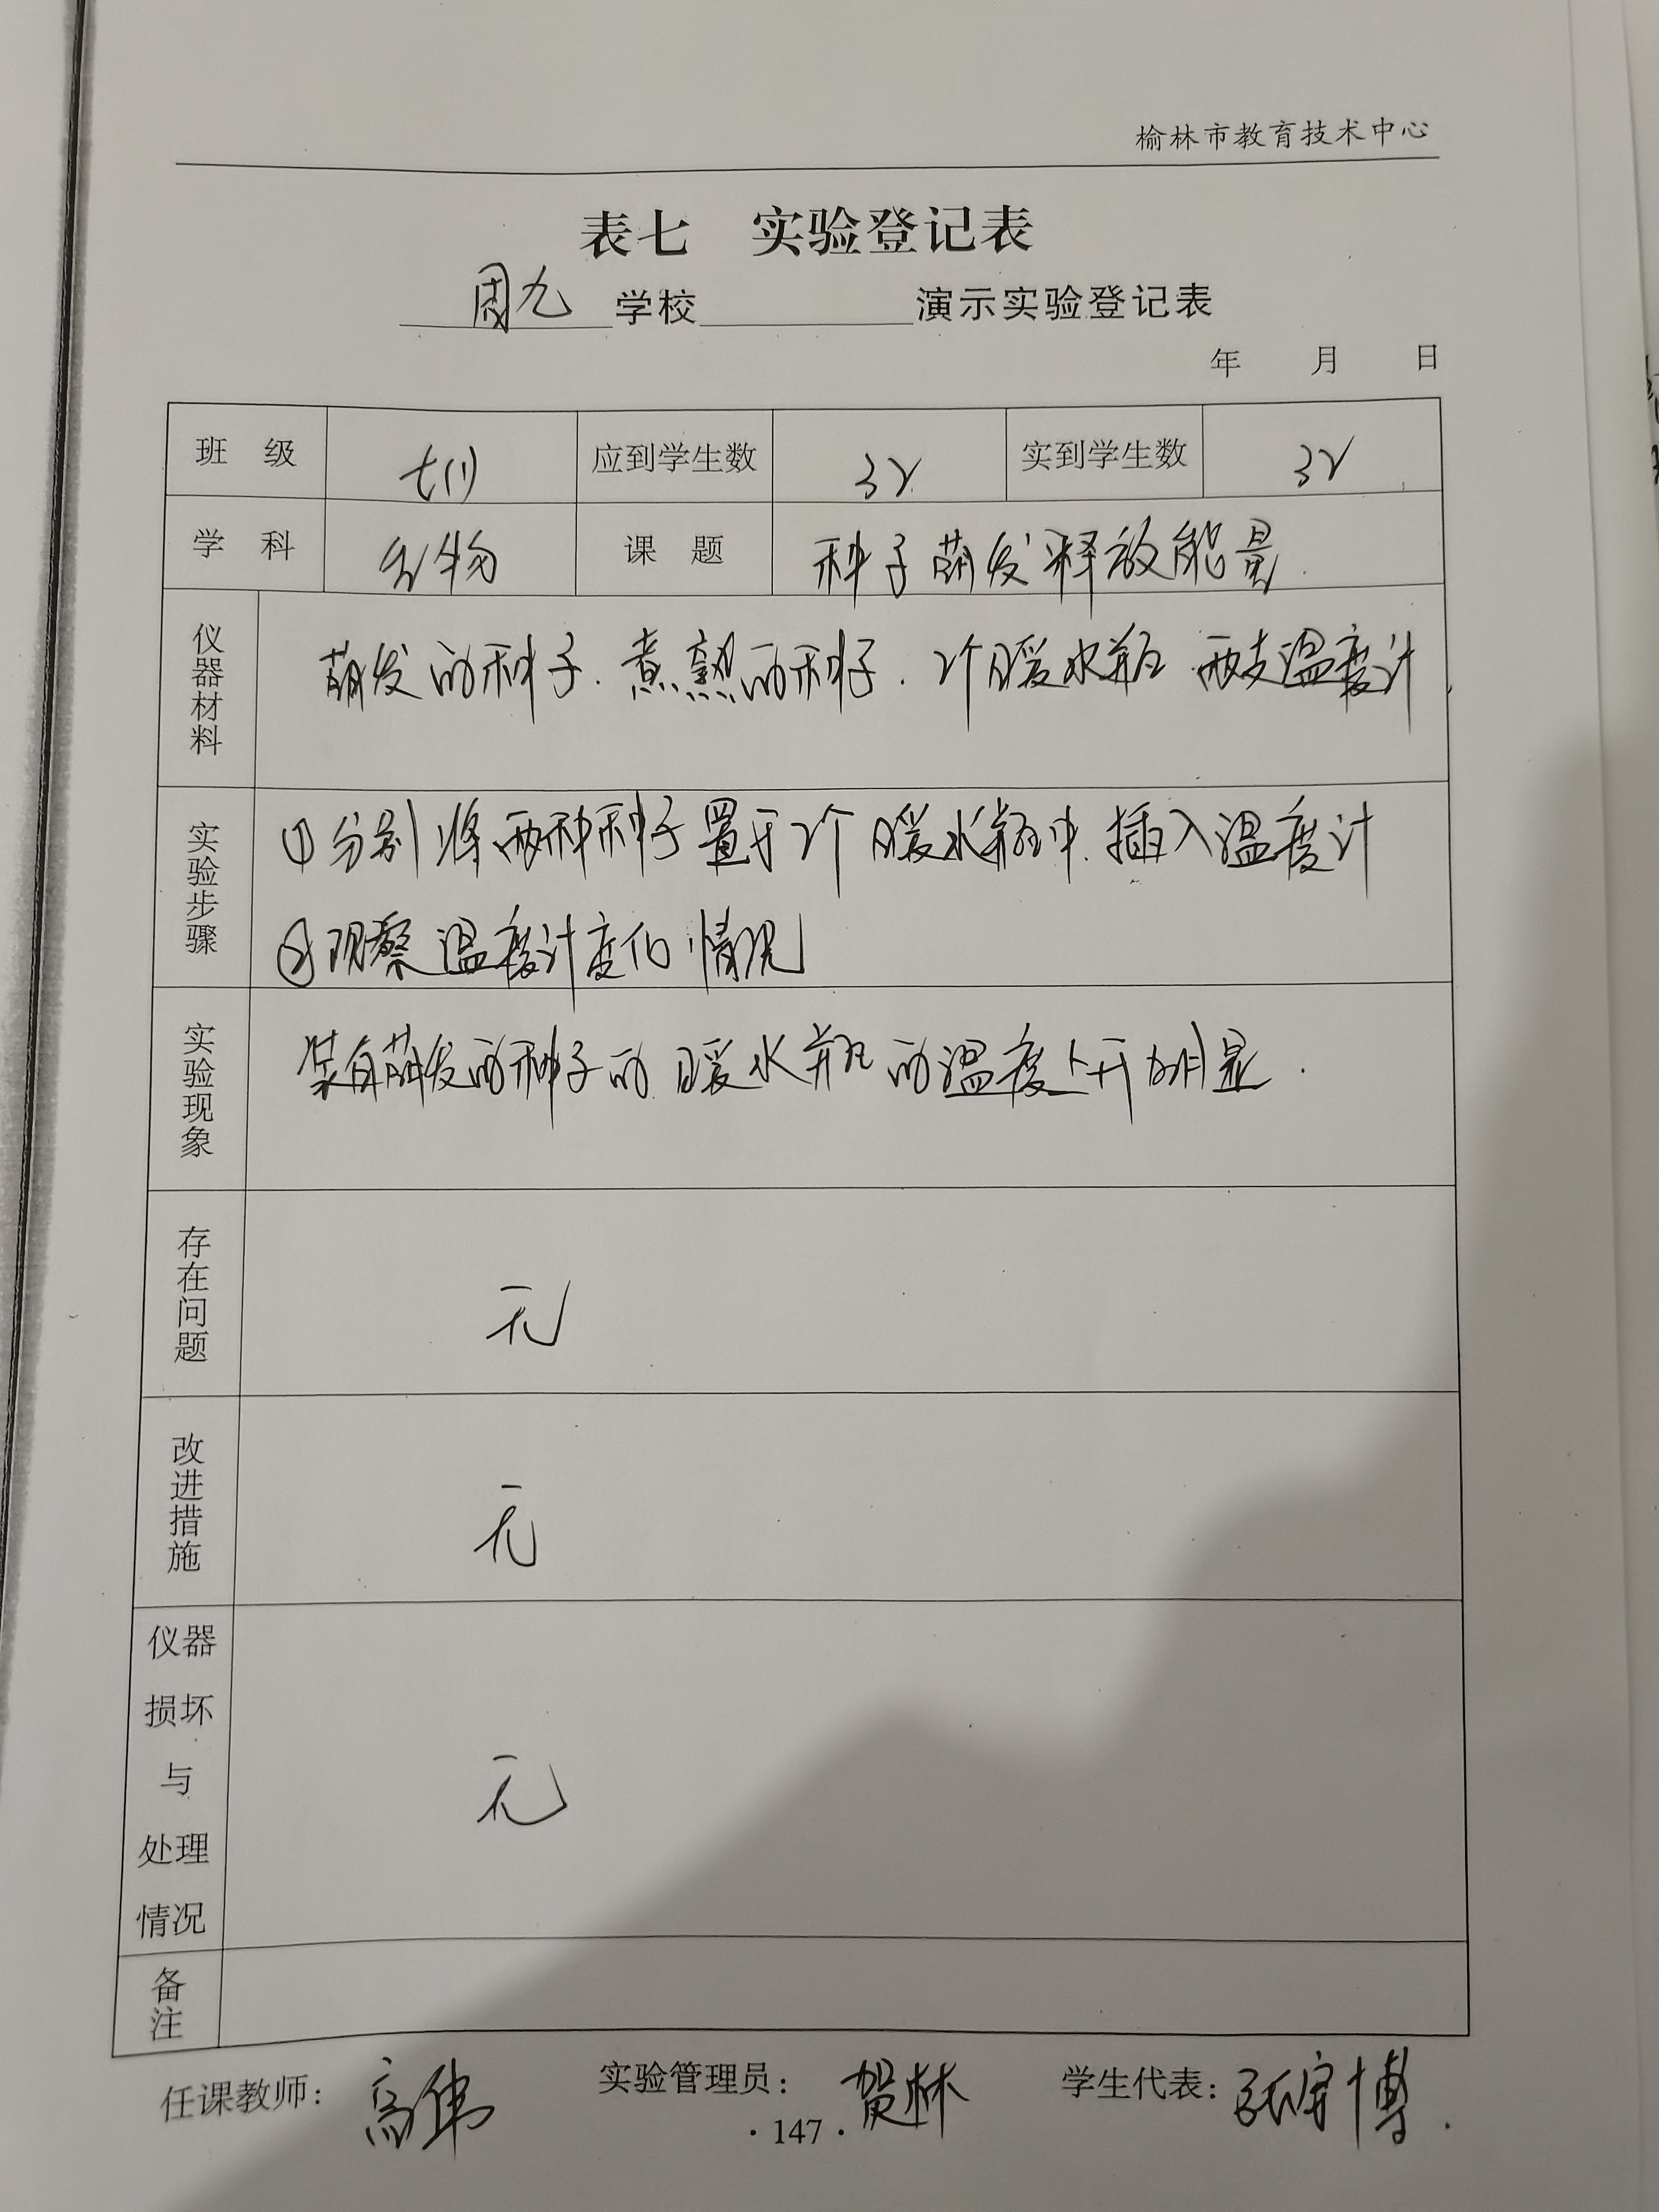 榆林市教育技术中心
表七 实验登记表
周九学校 演示实验登记表
年 月 日
班 级 七(1) 应到学生数 32 实到学生数 32
学 科 生物 课 题 种子萌发释放能量.
仪器材料 萌发的种子.煮熟的种子.2个暖水瓶 两支温度计.
实验步骤 ①分别将两种种子置于2个暖水瓶中.插入温度计
②观察温度计变化情况
实验现象 装有萌发的种子的暖水瓶的温度上升明显.
存在问题 无
改进措施 无
仪器
损坏
与
处理
情况 无
备注
任课教师: 高伟 实验管理员: 贺林 学生代表: 张宇博.
·147·